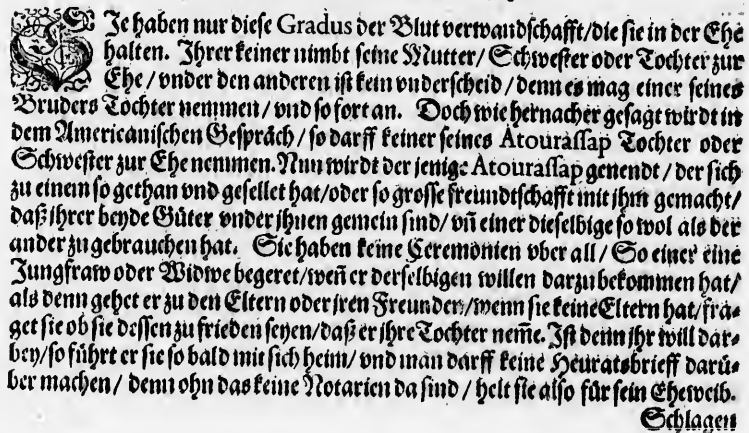 SIe haben nur diese Gradus der Blutverwandschafft/die sie in der Ehe
halten. Ihrer keiner nimbt seine Mutter/ Schwester oder Tochter zur
Ehe / vnder den anderen ist kein vnderscheid / denn es mag einer seines
Bruders Tochter nemmen/ vnd so fort an. Doch wie hernacher gesagt wirdt in
dem Americanischen Gespräch/ so darff keiner seines Atourassap Tochter oder
Schwester zur Ehe nemmen. Nun wirdt der jenige Atourassap genendt / der sich
zu einem so gethan vnd gesellet hat/oder so grosse freundtschafft mit jhm gemacht/
daß jhrer beyde Güter vnder jhnen gemein sind/ vñ einer dieselbige so wol als der
ander zu gebrauchen hat. Sie haben keine Ceremonien vber all / So einer eine
Jungfraw oder Widwe begeret/weñ er derselbigen willen darzu bekommen hat/
als denn gehet er zu den Eltern oder jren Freunden/wenn sie keine Eltern hat/fra⸗
get sie ob sie dessen zu frieden seyen/daß er jhre Tochter neme. Ist denn jhr will dar⸗
bey/so führt er sie so bald mit sich heim/ vnd man darff keine Heuratsbrieff darü⸗
ber machen/ denn ohn das keine Notarien da sind / helt sie also für sein Eheweib.
Schlagen